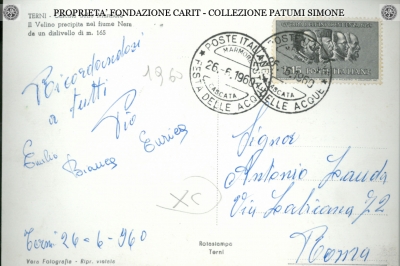 PROPRIETA' FONDAZIONE CARIT - COLLEZIONE PATUMI SIMONE
TERNI -
Il Velino precipita nel fiume Nera
da un dislivello di m. 165
1960
Ricordandosi
a tutti
Pio
Enrica
Emilio
Bianca
Terni 26-6-960
POSTE ITALIANE
MARMORE
26.-6.1960
CASCATA
FESTA DELLE ACQUE
POSTE ITALIANE
Signor
Antonio Lauda
Via Labicana 72
Roma
Vera Fotografia - Ripr. vietata
Rotostampa
Terni